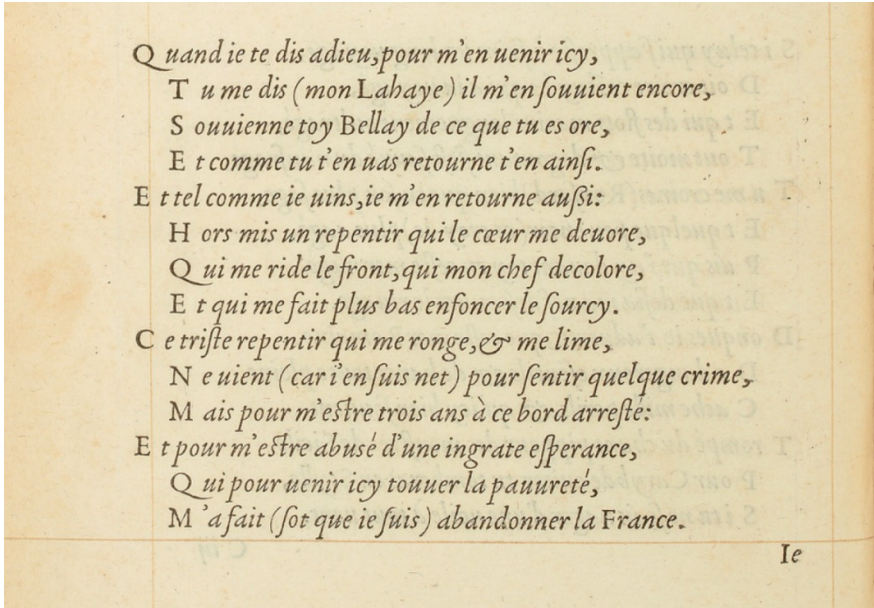 Quand ie te dis adieu, pour m'en uenir icy,
Tu me dis (mon Lahaye) il m'en souuient encore,
Souuienne toy Bellay de ce que tu es ore,
Et comme tu t'en uas retourne t'en ainsi.
Et tel comme ie uins, ie m'en retourne außi:
Hors mis un repentir qui le cœur me deuore,
Qui me ride le front, qui mon chef decolore,
Et qui me fait plus bas enfoncer le sourcy.
Ce triste repentir qui me ronge, & me lime,
Ne uient (car i'en suis net) pour sentir quelque crime,
Mais pour m'estre trois ans à ce bord arresté:
Et pour m'estre abusé d'une ingrate esperance,
Qui pour uenir icy touuer la pauureté,
M'a fait (sot que ie suis) abandonner la France.
Ie